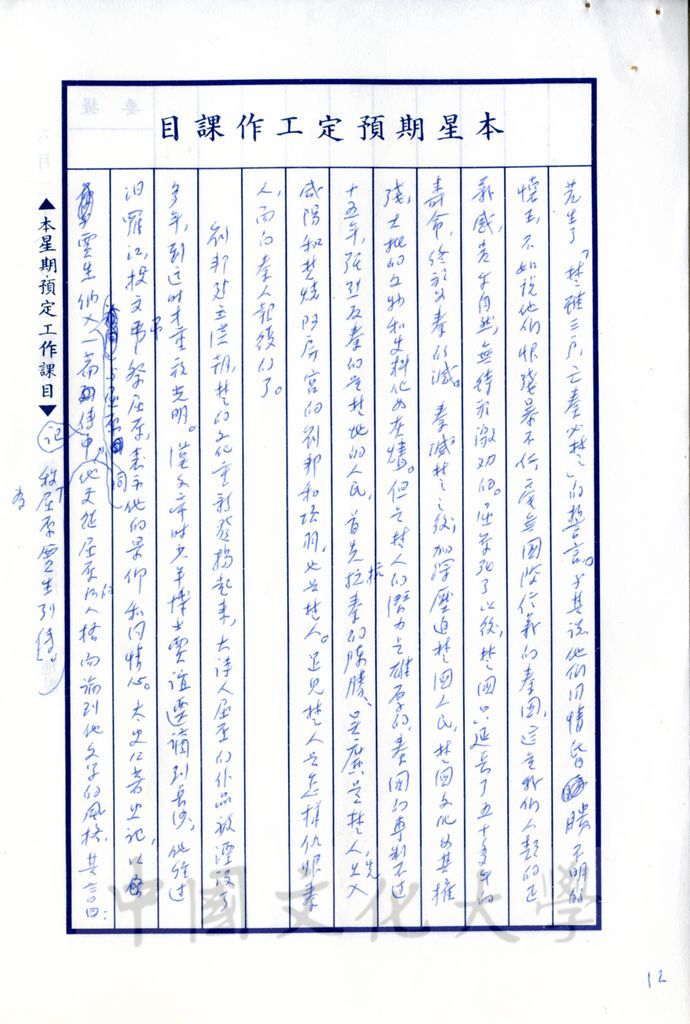 本星期預定工作課目
產生了「楚雖三戶，亡秦必楚」的誓言。與其說他們同情昏聵不明的
懷王，不如說他們恨殘暴不仁，毫無國際信義的秦國，這是我們人類的正
義感，是出乎自然，無待於激勸的。屈原死了以後，楚國只延長了五十多年的
壽命，終於為秦所滅。秦滅楚之後，加深壓迫楚國人民，楚國文化為其摧
殘，大批的文物和史料化為灰燼。但是楚人的潛力是雄厚的，秦國的專制不過
十五年，強烈反秦的是楚地的人民，首先抗秦的陳勝、吳廣是楚人，先入
咸陽和焚燒阿房宮的劉邦和項羽，也是楚人。足見楚人是怎樣仇恨秦
人，而向秦人報復的了。
劉邦建立漢朝，楚的文化重新發揚起來，大詩人屈原的作品被湮沒了
多年，到這時才重放光明。漢文帝時少年博士賈誼遷謫到長沙，他經過
汨羅江，投文弔祭屈原，表示他的景仰和同情心。太史公著史記，以
賈生納入一篇傳中，他更從屈原的人格而論到他文字的風格。其言曰：
與屈原同
記
為屈原賈生列傳
▲本星期預定工作課目▼
中國文化大學
12